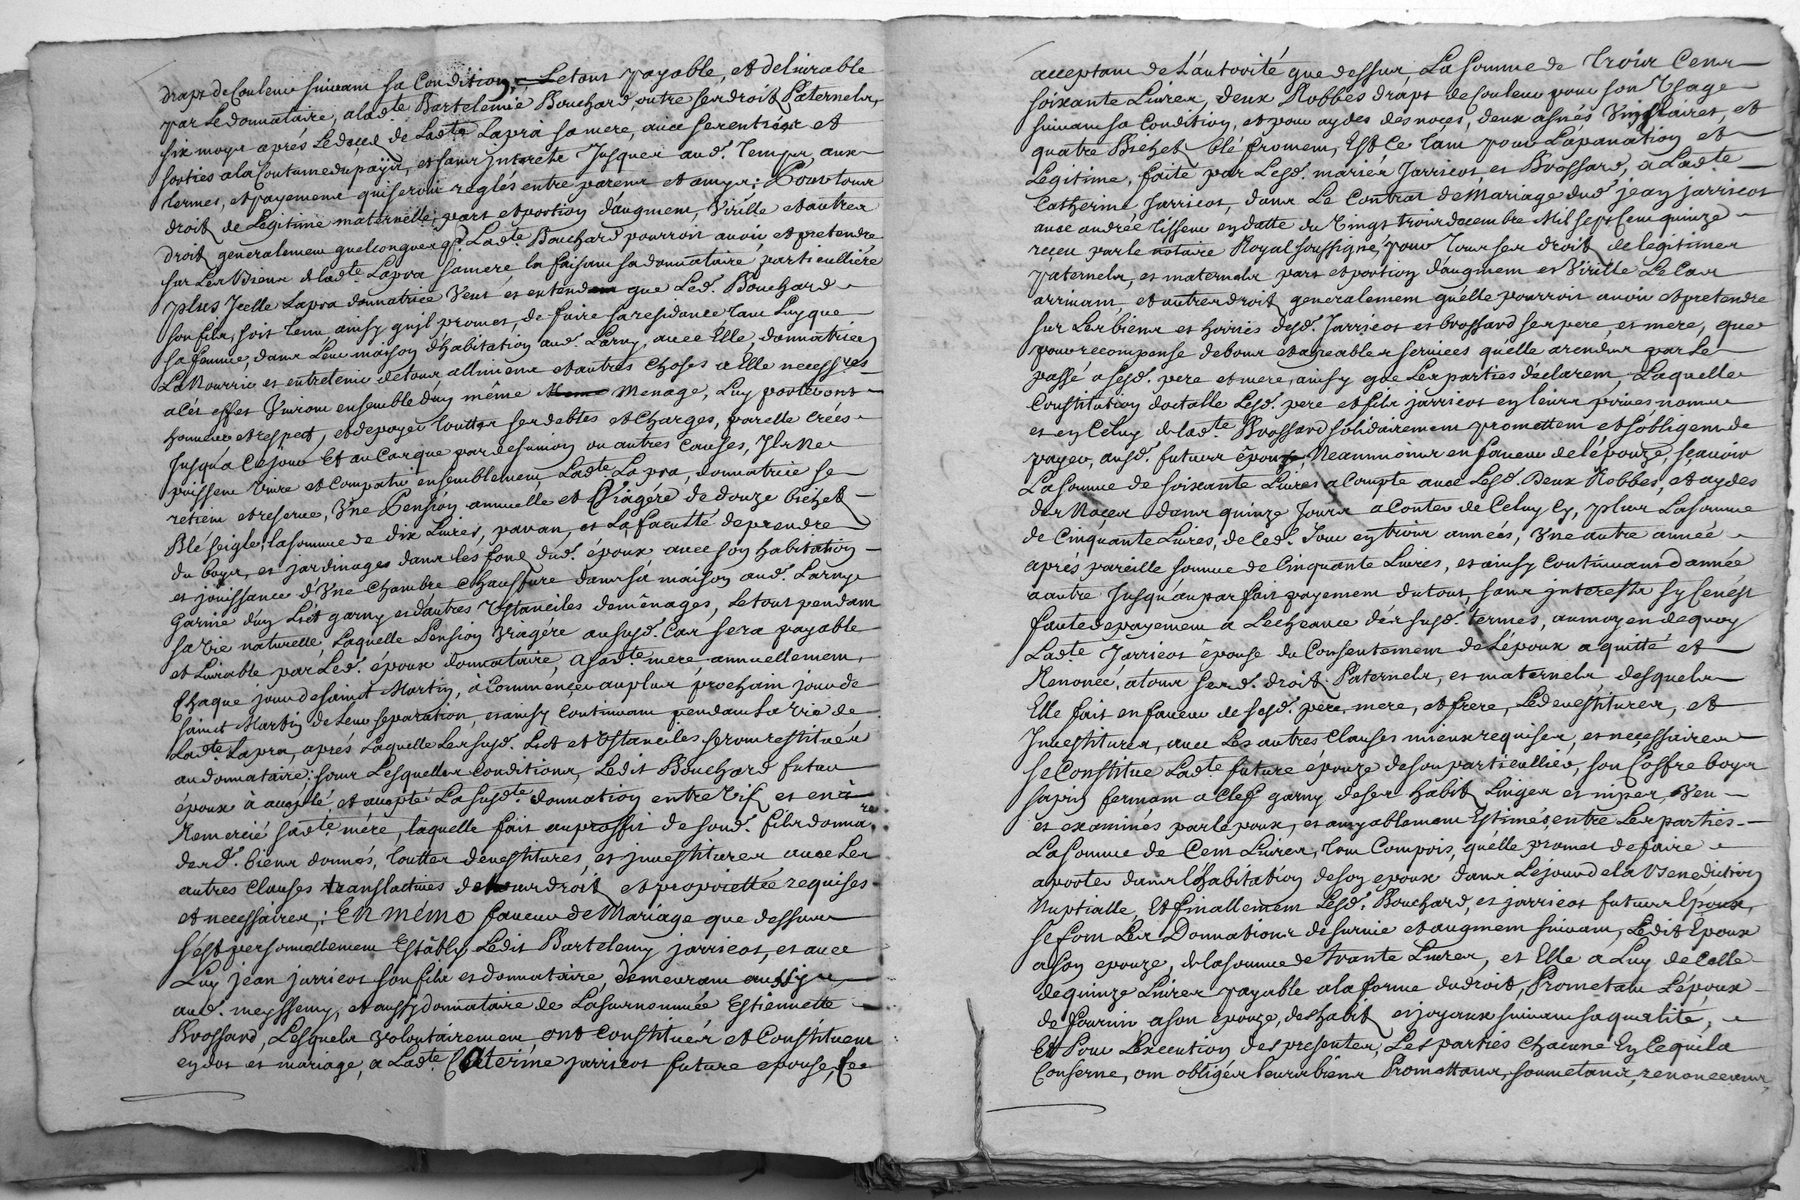 draps de Couleur suivant sa Condition, Le tout payable, et delivrable
par Le donnataire, a lad.te Bartelemie Bouchard, outre ses droits Paternels,
six moys aprés Le deced de Ladte Lapra sa mere, avec ses entrées et
sorties a la Coutume du paÿis, et sans jnterets Jusques aud. temps, aux
termes, et payements qui seront reglés entre parens et amys; Pour tous
droit de Legitime maternelle; part et portion d'augment, Virille et autres
droit generalement quelconques q. Ladte Bouchard pourroit avoir et pretendre
sur Les Biens de ladte Lapra sa mere, la faisant sa donnataire particulliere
plus Jcelle Lapra donnatrice Veut et entend que Led. Bouchard
son fils, soit tenu ainsy qu'jl promet, de faire sa residance tant Luy que
sa femme, dans Leur maison d'habitation aud. Larny, avec Elle, donnatrice
La Nourrir et entretenir de tous alliments et autres choses a Elle necessres
a Cét effet Vivront ensemble d'un même Menage, Luy porteront
honneur et respect, et de payer touttes ses debtes et Charges, par elle créés
Jusqu'a Ce jour Et au Cas que par desunion ou autres Causes, Jls Ne
puissent Vivre et Compatir ensemblement Ladte Lapra, donnatrice se
retient et reserve, Vne Pension annuelle et Viagére de douze bichets
Blé seigle; la somme de dix Livres, par an, et La faculté de prendre
du boys, et jardinages dans les fonds dud. époux avec son habitation
et jouissance d'Vne Chambre Chauffure dans sa maison aud. Larny
Garnie d'un Lict garny et d'autres Vstanciles de mênages, Le tout pendant
sa Vie naturelle, Laquelle Pension Viagére au susd. Cas sera payable
et Livrable par Led. époux donnataire, a sadte mere annuellement,
Chaque jour de sainct Martin, à Commencer au plus prochain jour de
sainct Martin de Leur separation, et ainsy Continuant pendant La Vie de
Ladte Lapra, aprés Laquelle Les susd. Lict et Vstanciles seront restitués
au donnataire: sous Lesquelles Conditions, Ledit Bouchard futur
époux à accepté, et accepte La susdte donnation entre Vifs et en a
Remercié sadte mére, laquelle fait au proffit de sond. fils donna.re
desd. biens donnés, touttes devestitures, et jnvestitures avec Les
autres Clauses translactives de droit et proprietté requises
et necessaires; En même faveur de Mariage que dessus
s'est personnellement Establis Ledit Bartelemy jarricot, et avec
Luy jean jarricot son fils et donnataire, demeurant aussy
aud. meyssemy, et aussy donnataire de La surnommée Estiennette
Brossard, Lesquels volontairement ont Constitués et Constituent
en dot et mariage, a Ladte Caterine jarricot future epouse, Ce
acceptant de L'autorité que dessus, La somme de Trois Cent
soixante Livres, deux Robbes draps de Couleur pour son Vsage
suivant sa Condition, et pour aydes des noces, deux asnés Vin Clairet, et
quatre Bichets blé froment, Est Ce tant pour L'apanation et
Legitime, faite par Lesd. mariés Jarricot, et Brossard, a Ladte
Catherine Jarricot, dans Le Contrat de Mariage dud. jean jarricot
avec andrée Tisseur en datte du Vingt trois decembre Mil sept Cent quinze
receu par le notaire Royal soussigné, pour tous ses droit de legitimes
paternels, et maternels part et portion d'augment et Virille Le Cas
arrivant, et autres droit generalement qu'elle pourroit avoir et pretendre
sur Les biens et hoiries desd. Jarricot et brossard ses pere, et mere, que
pour recompense de bons et agreables services qu'elle a rendus par Le
passé a sesd. pere et mere, ainsy que Les parties declarent, Laquelle
Constitution dotalle Lesd. pere et fils jarricot en leurs privés noms
et en Celuy de ladte Brossard solidairement promettent et s'obligent de
payer, ausd. futurs époux, Neanmoins en faveur de l'épouze, sçavoir
La somme de soixante Livres a Compte avec Lesd. Deux Robbes, et aydes
des Noces dans quinze Jours a Conter de Celuy Cy, plus La somme
de Cinquante Livres, de Ced. Jour en trois années, Vne autre année
aprés pareille somme de Cinquante Livres, et ainsy Continuant d'année
a autre Jusqu'au parfait payement du tout, sans jnterests sy Ce n'est
faute de payement a L'echeance desd. susd. termes, au moyen de quoy
Ladte Jarricot épouse du Consentement de L'époux a quitté et
Renoncé, a tous sesd. droit Paternels, et maternels desquels
Elle fait en faveur de sesd. pére, mere, et frere, Les devestitures, et
Jnvestitures, avec Les autres Clauses mieux requises, et necessaires
se Constitue Ladte future épouze de son particullier, son Coffre boys
sapin fermant a Clef garny de ses habits Linges et nipes, Veu
et examinés par l'epoux, et amyablement Estimés entre Les parties
La somme de Cent Livres, tout Compris, qu'elle promet de faire
aporter dans L'habitation de son epoux dans Le jour de la Benediction
Nuptialle. Et finallement Lesd. Bouchard, et jarricot futurs Epoux,
se font Les Donnations de survie et augment suivant, Ledit Epoux
a son epouze, de la somme de trante Livres, et Elle a Luy de Celle
de quinze Livres payable a la forme du droit, Promettant L'époux
de fournir a son épouze, des habits et joyaux suivant sa qualité,
Et Pour L'execution des presentes, Les parties chacune En Ce qui la
Conserne, ont obligés leurs biens Promettans, soumetans, renonceans,